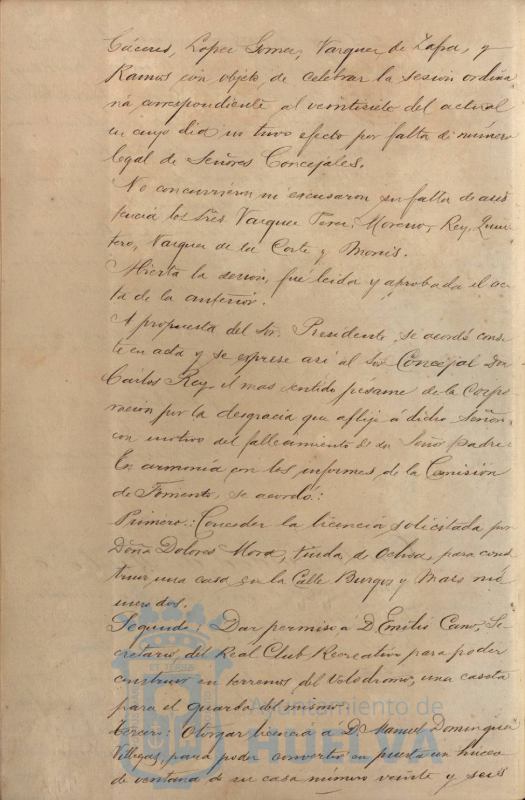 Cáceres, Lopez Gomez, Vazquez de Zafra, y
Ramos con objeto, de celebrar la sesión ordina
ria correspondiente al veintisiete del actual
en cuyo dia no tuvo efecto por falta de número
legal de Señores Concejales.
No concurrieron ni excusaron su falta de asis
tencia los Sres Vazquez Perez, Moreno, Rey, Quin
tero, Vazquez de la Corte y Monis.
Abierta la sesion, fué leida y aprobada el ac
ta de la anterior.
A propuesta del Sr. Presidente, se acordó cons
te en acta y se exprese asi al Sor Concejal Don
Carlos Rey el mas sentido pésame de la Corpo
ración por la desgracia que aflije á dicho Señor
con motivo del fallecimiento de su Señor padre.
En armonía con los informes, de la Comisión
de Fomento, se acordó:
Primero: Conceder la licencia solicitada por
Doña Dolores Mora, Viuda de Ochoa, para cons
truir una casa en la Calle Burgos y Maes nú
mero dos.
Segundo: Dar permiso á D. Emilio Cano, Se
cretario, del Real Club Recreativo para poder
construir en terrenos del Velodromo, una caseta
para el guarda del mismo.
Tercero: Otorgar licencia á D. Manuel Dominguez
Villegas, para poder convertir en puerta un hueco
de ventana de su casa número veinte y seis
Ayuntamiento de
HUELVA